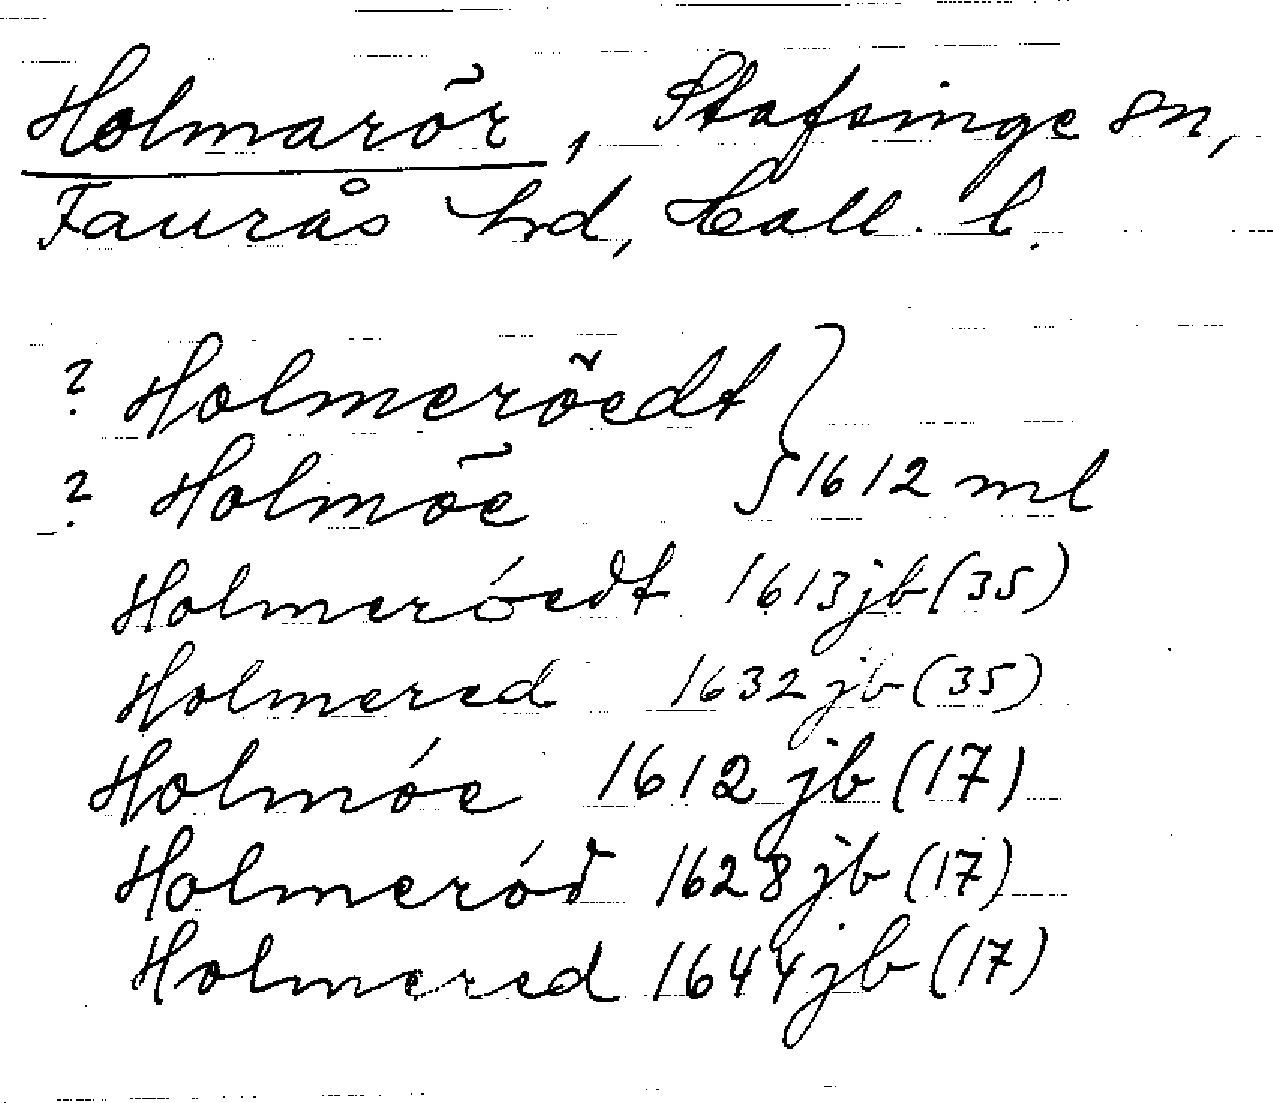 Holmarör, Stafsinge sn,
Faurås hd, Hall. l.
? Holmeröedt }
? Holmöe } 1612 ml
Holmeróedt 1613 jb (35)
Holmered 1632 jb (35)
Holmóe 1612 jb (17)
Holmeród 1628 jb (17)
Holmered 1644 jb (17)